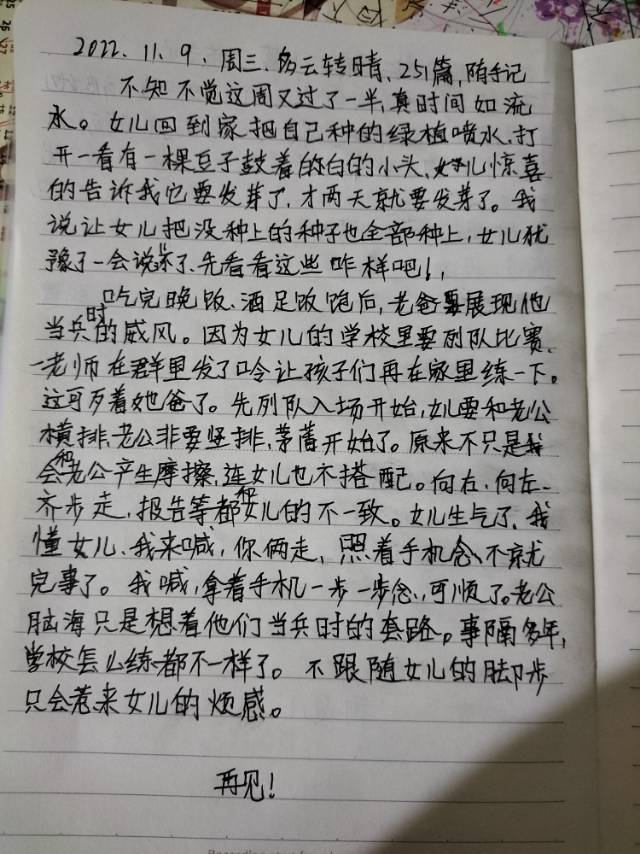 2022.11.9.周三.多云转晴.251篇,随手记
不知不觉这周又过了一半,真时间如流
水。女儿回到家把自己种的绿植喷水.打
开一看有一棵豆子鼓着的白的小头.女儿惊喜
的告诉我它要发芽了,才两天就要发芽了。我
说让女儿把没种上的种子也全部种上,女儿犹
豫了一会说了.先看看这些咋样吧!,
吃完晚饭、酒足饭饱后,老爸要展现他
当兵时的威风。因为女儿的学校里要列队比赛.
老师在群里发了口令让孩子们再在家里练一下。
这可歹着她爸了。先列队入场开始,女儿要和老公
横排,老公非要竖排,茅盾开始了。原来不只是我
会和老公产生摩擦,连女儿也不搭配。向右、向左、
齐步走,报告等都和女儿的不一致。女儿生气了.我
懂女儿、我来喊,你俩走,照着手机念、不就
完事了。我喊,拿着手机一步一步念,,可顺了。老公
脑海只是想着他们当兵时的套路。事隔多年,
学校怎么练都不一样了。不跟随女儿的脚步
只会惹来女儿的烦感。
再见!